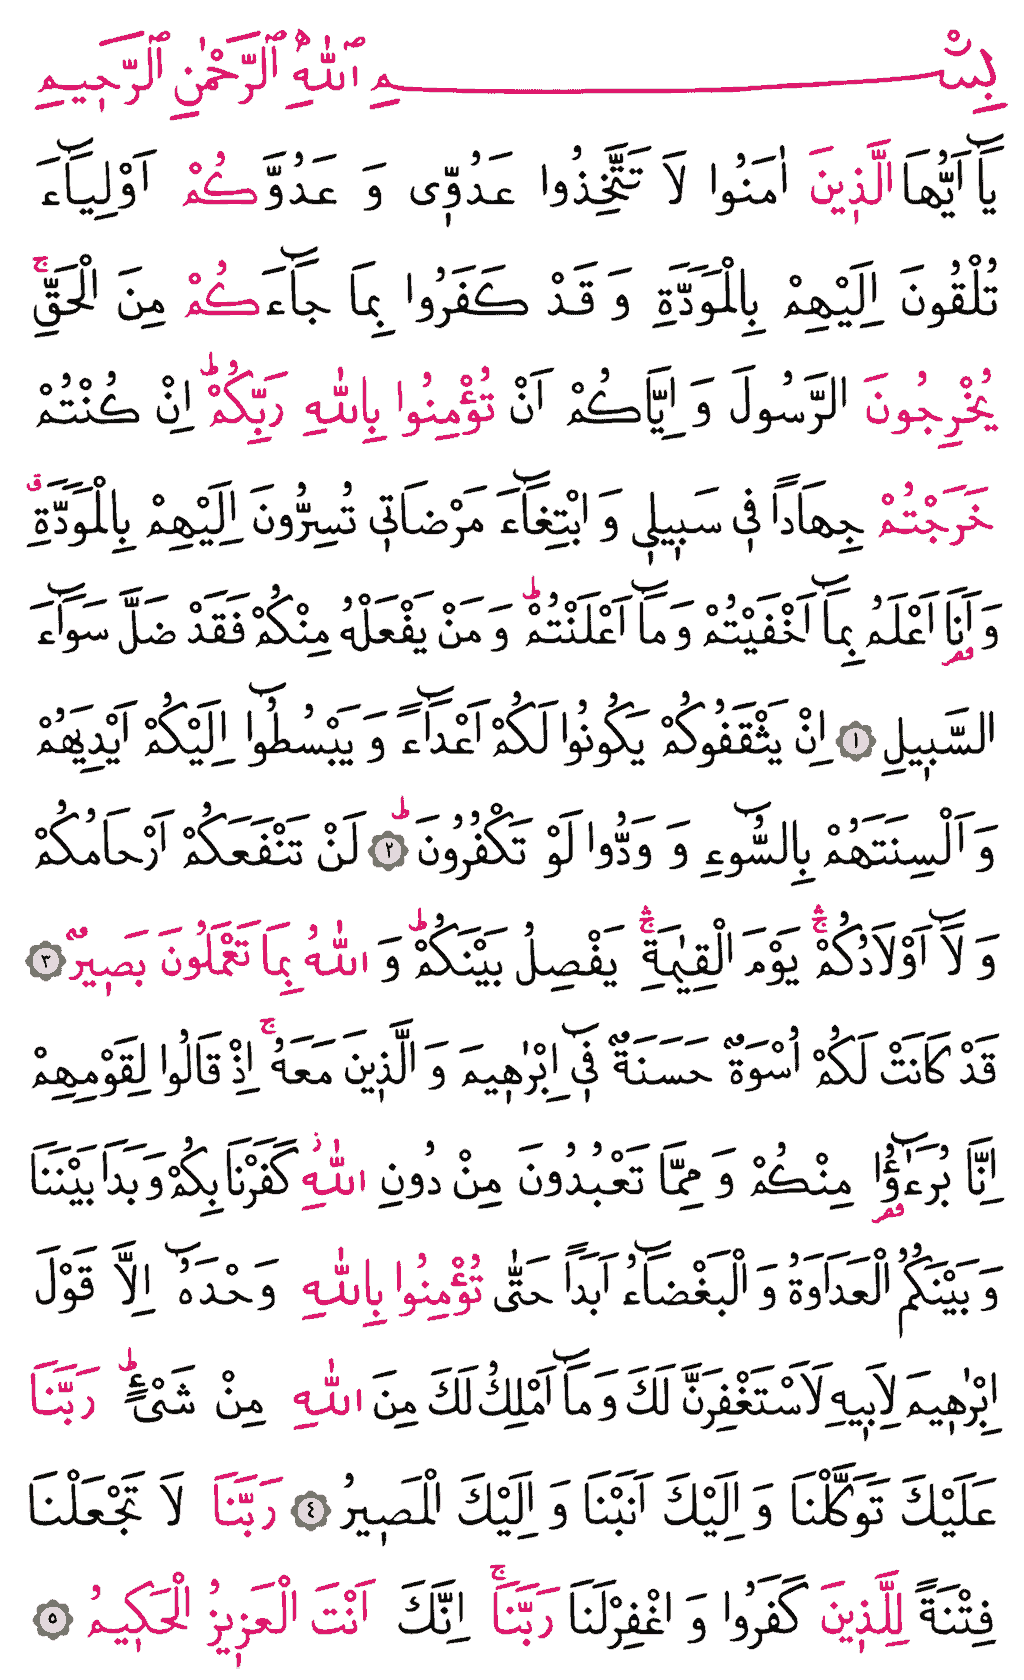 بِسْمِ ٱللّٰهِ ٱلرَّحْمٰنِ ٱلرَّحٖيمِ
يَٓا اَيُّهَا الَّذٖينَ اٰمَنُوا لَا تَتَّخِذُوا عَدُوّٖى وَ عَدُوَّكُمْ اَوْلِيَٓاءَ
تُلْقُونَ اِلَيْهِمْ بِالْمَوَدَّةِ وَ قَدْ كَفَرُوا بِمَا جَٓاءَكُمْ مِنَ الْحَقِّۚ
يُخْرِجُونَ الرَّسُولَ وَ اِيَّاكُمْ اَنْ تُؤْمِنُوا بِاللّٰهِ رَبِّكُمْؕ اِنْ كُنْتُمْ
خَرَجْتُمْ جِهَادًا فٖى سَبٖيلٖى وَ ابْتِغَٓاءَ مَرْضَاتٖى تُسِرُّونَ اِلَيْهِمْ بِالْمَوَدَّةِࣗ
وَ اَنَا۬ اَعْلَمُ بِمَٓا اَخْفَيْتُمْ وَ مَٓا اَعْلَنْتُمْؕ وَ مَنْ يَفْعَلْهُ مِنْكُمْ فَقَدْ ضَلَّ سَوَٓاءَ
السَّبٖيلِ ﴿١﴾ اِنْ يَثْقَفُوكُمْ يَكُونُوا لَكُمْ اَعْدَٓاءً وَ يَبْسُطُٓوا اِلَيْكُمْ اَيْدِيَهُمْ
وَ اَلْسِنَتَهُمْ بِالسُّٓوءِ وَ وَدُّوا لَوْ تَكْفُرُونَؕ ﴿٢﴾ لَنْ تَنْفَعَكُمْ اَرْحَامُكُمْ
وَ لَٓا اَوْلَادُكُمْۚۛ يَوْمَ الْقِيٰمَةِۚۛ يَفْصِلُ بَيْنَكُمْؕ وَ اللّٰهُ بِمَا تَعْمَلُونَ بَصٖيرٌ ﴿٣﴾
قَدْ كَانَتْ لَكُمْ اُسْوَةٌ حَسَنَةٌ فٖٓى اِبْرٰهٖيمَ وَ الَّذٖينَ مَعَهُۚ اِذْ قَالُوا لِقَوْمِهِمْ
اِنَّا بُرَءٰٓؤُ۬ا مِنْكُمْ وَ مِمَّا تَعْبُدُونَ مِنْ دُونِ اللّٰهِؗ كَفَرْنَا بِكُمْ وَ بَدَا بَيْنَنَا
وَ بَيْنَكُمُ الْعَدَاوَةُ وَ الْبَغْضَٓاءُ اَبَدًا حَتّٰى تُؤْمِنُوا بِاللّٰهِ وَحْدَهُٓ اِلَّا قَوْلَ
اِبْرٰهٖيمَ لِاَبٖيهِ لَاَسْتَغْفِرَنَّ لَكَ وَ مَٓا اَمْلِكُ لَكَ مِنَ اللّٰهِ مِنْ شَىْءٍؕ رَبَّنَا
عَلَيْكَ تَوَكَّلْنَا وَ اِلَيْكَ اَنَبْنَا وَ اِلَيْكَ الْمَصٖيرُ ﴿٤﴾ رَبَّنَا لَا تَجْعَلْنَا
فِتْنَةً لِلَّذٖينَ كَفَرُوا وَ اغْفِرْلَنَا رَبَّنَاۚ اِنَّكَ اَنْتَ الْعَزٖيزُ الْحَكٖيمُ ﴿٥﴾